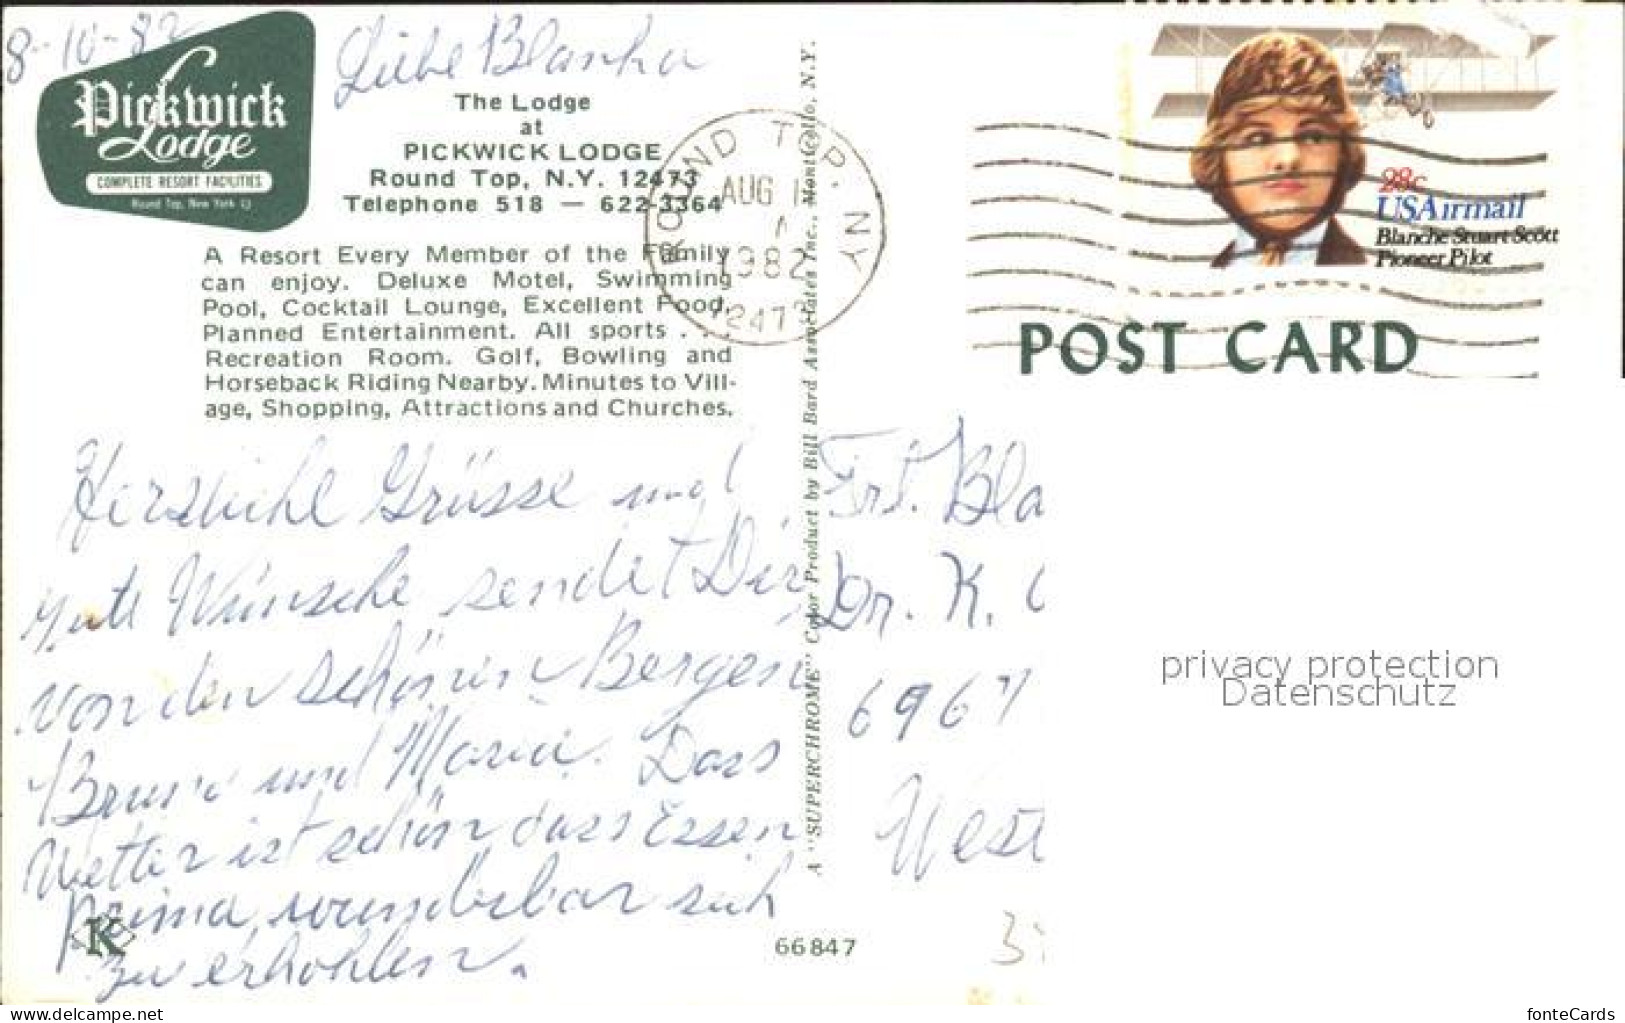 8-10-82
Liebe Blanka
Pickwick
Lodge
COMPLETE RESORT FACILITIES
Round Top, New York
The Lodge
at
PICKWICK LODGE
Round Top, N.Y. 12473
Telephone 518 — 622-3364
A Resort Every Member of the Family
can enjoy. Deluxe Motel, Swimming
Pool, Cocktail Lounge, Excellent Food,
Planned Entertainment. All sports . . .
Recreation Room. Golf, Bowling and
Horseback Riding Nearby. Minutes to Vill-
age, Shopping, Attractions and Churches.
Herzliche Grüsse und
gute Wünsche sendet Dir
von den schönen Bergen
Bruno und Maria. Dass
Wetter ist schön dass Essen
prima, wunderbar sich
zu erhohlen.
K
66847
A "SUPERCHROME" Color Product by Bill Bard Associates Inc., Monticello, N.Y.
ROUND TOP, NY
AUG 1
1982
12473
28c
USAirmail
Blanche Stuart Scott
Pioneer Pilot
POST CARD
Frl. Bla
Dr. K.
6967
West
privacy protection
Datenschutz
www.delcampe.net
fonteCards